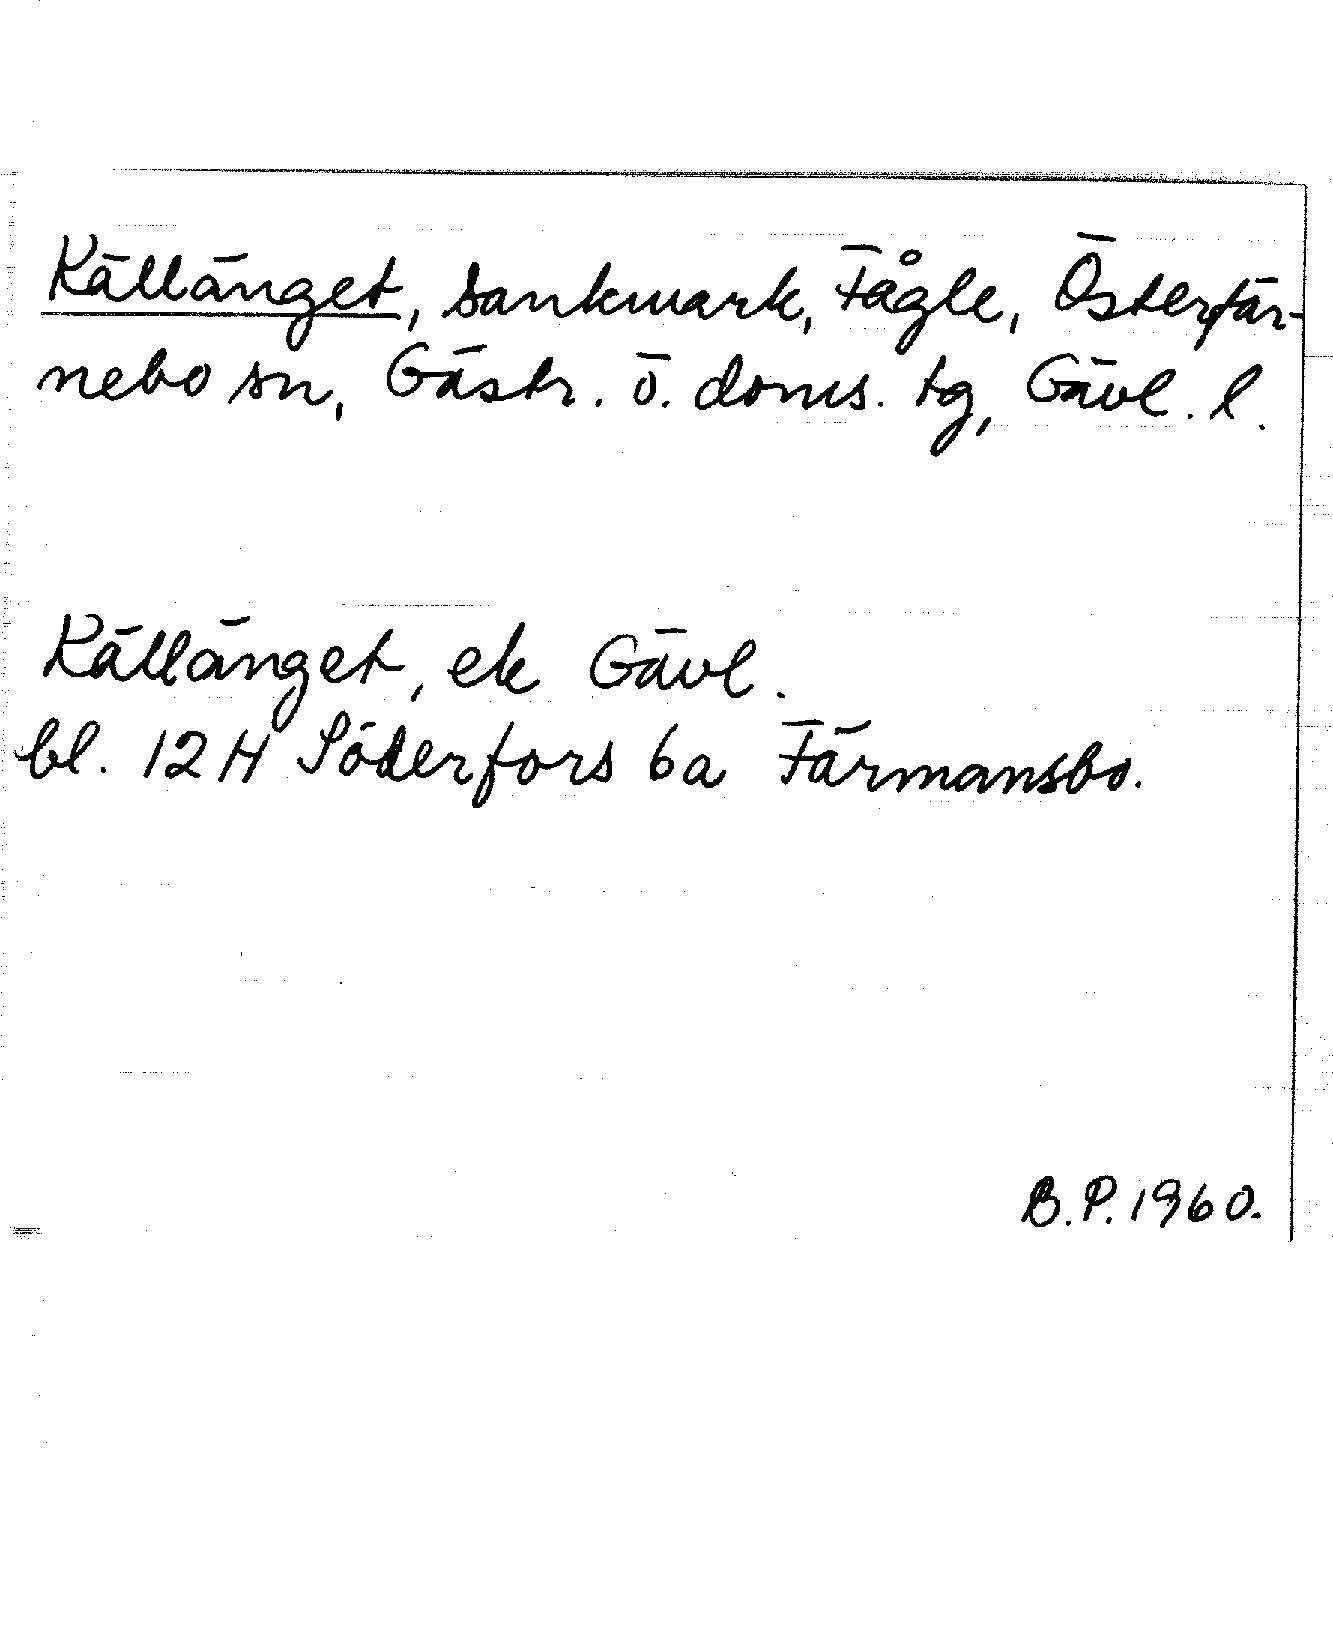 Källänget, sankmark, Fågle, Österfär-
nebo sn, Gästr. ö. doms. tg, Gävl. l.
Källänget, ek Gävl.
bl. 12 H Söderfors 6a Färmansbo.
B.P. 1960.